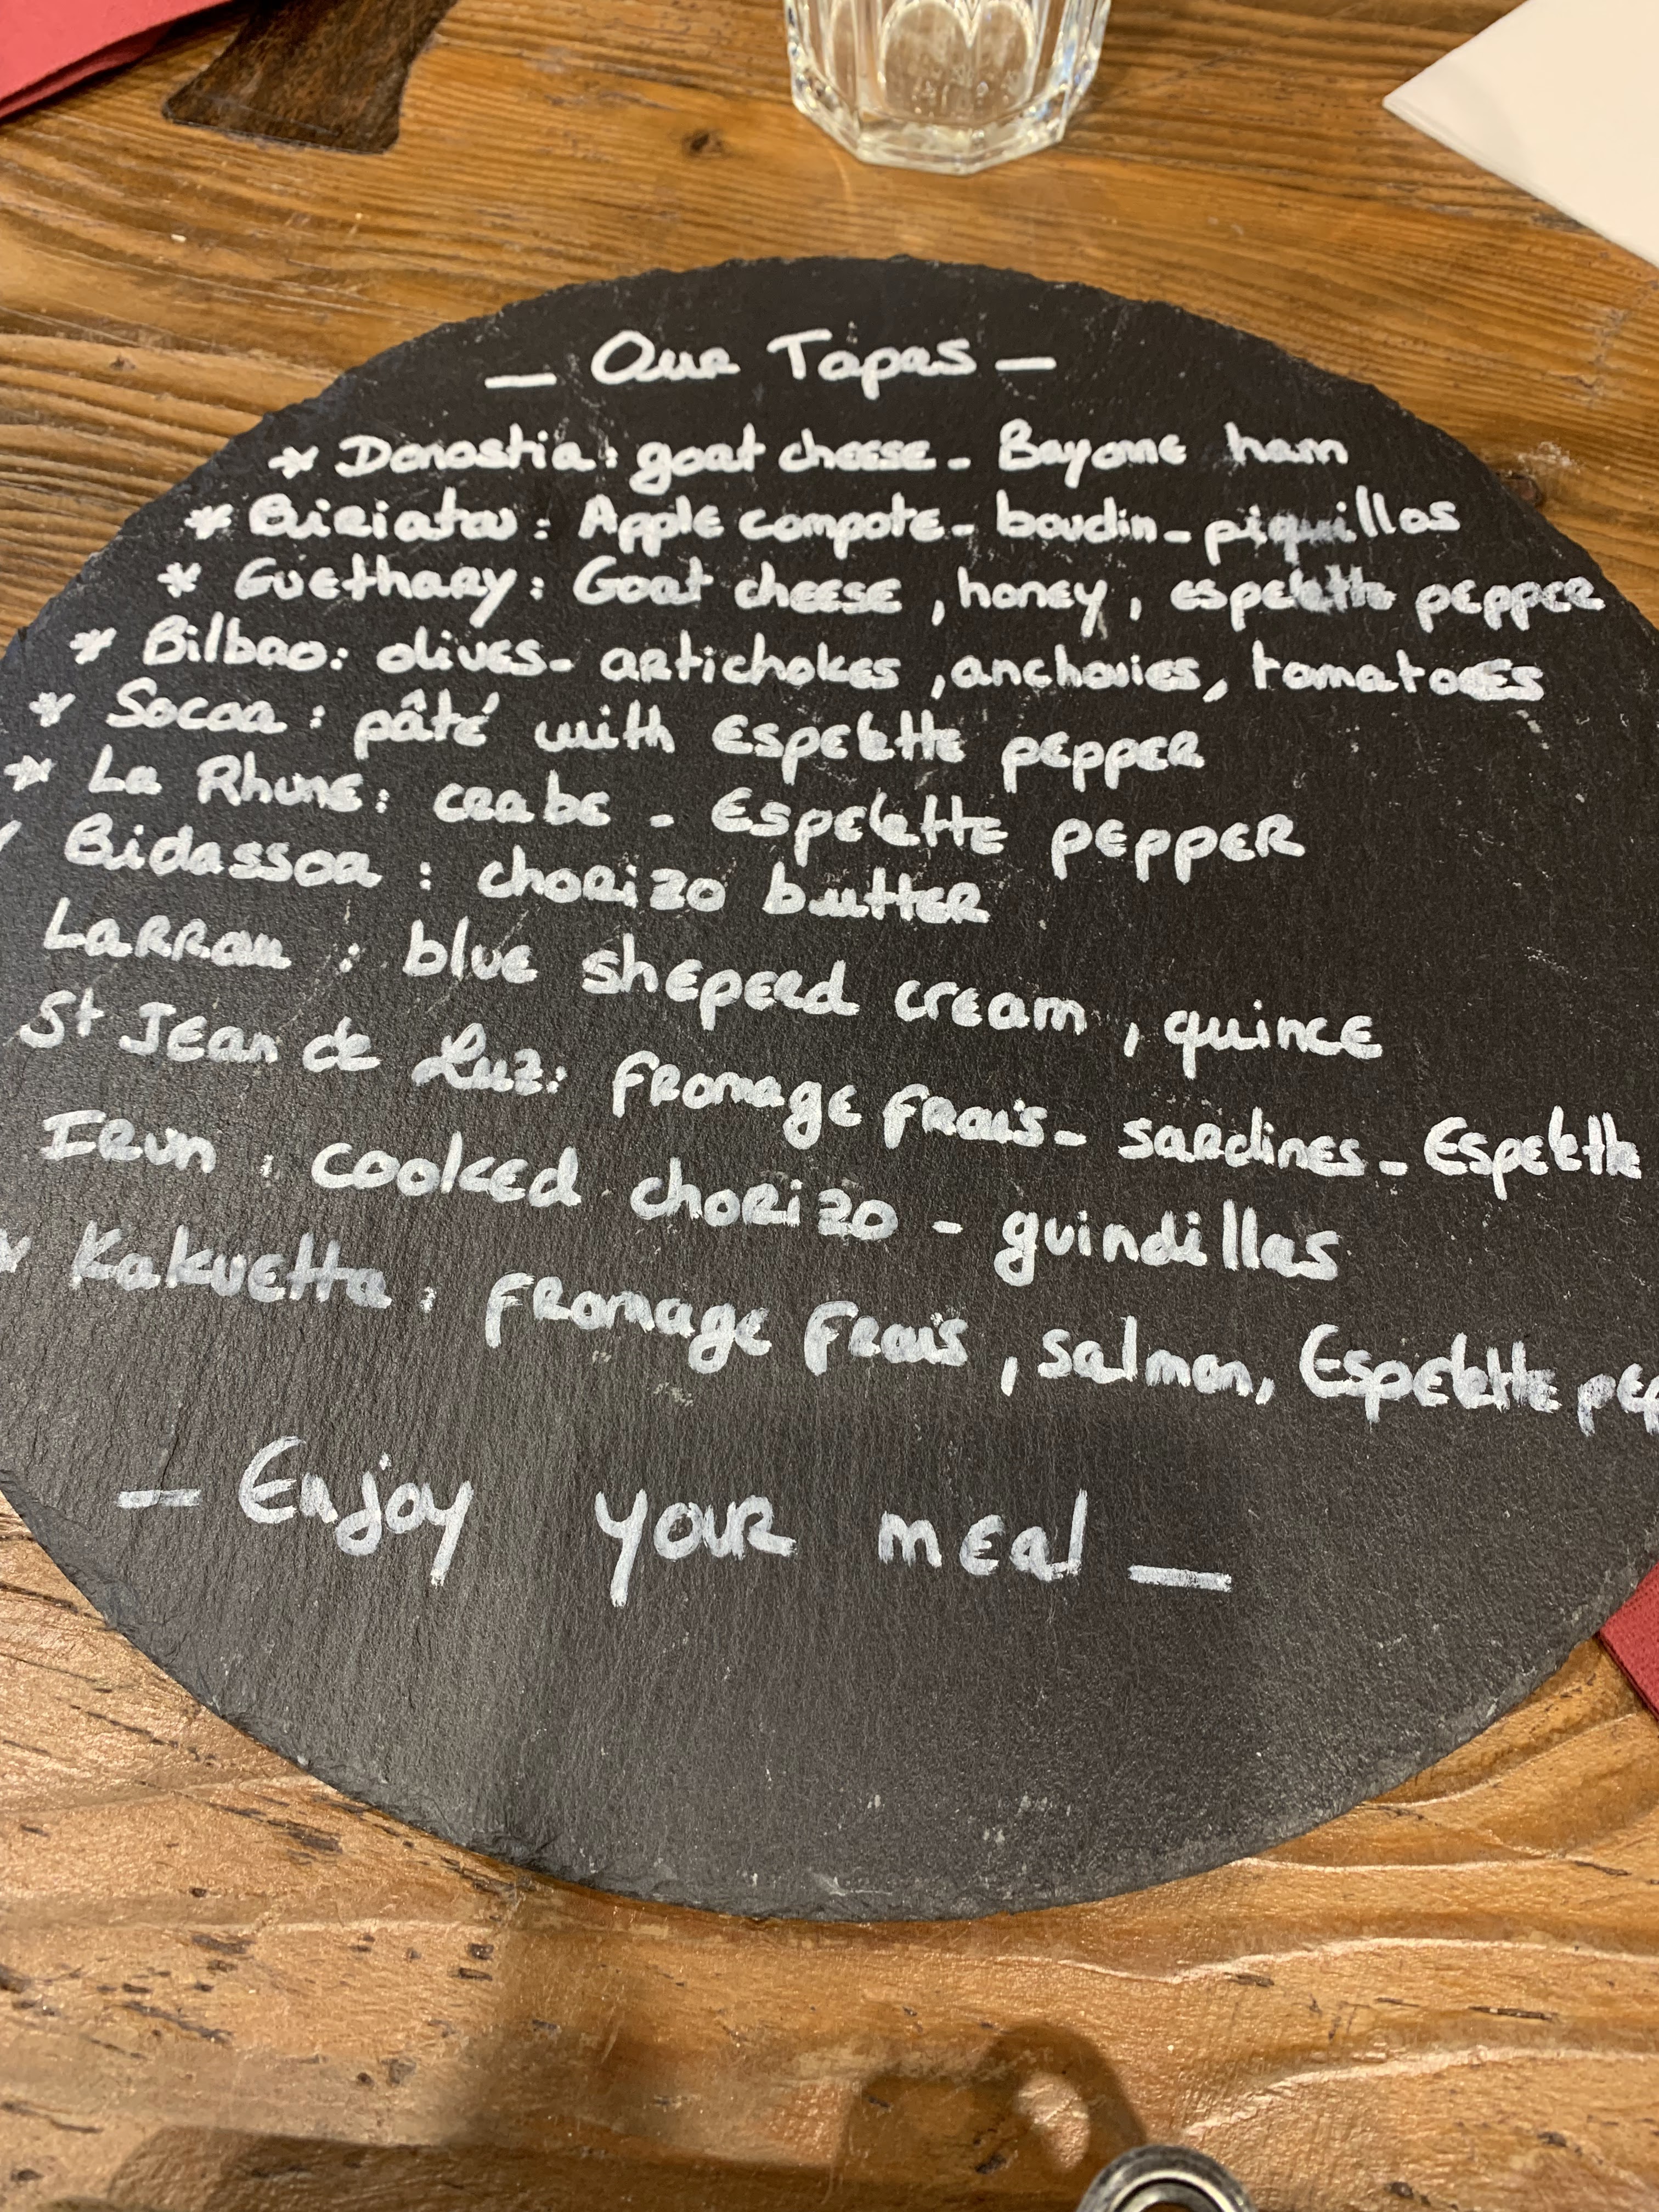 — Our Tapas —
* Donostia: goat cheese - Bayonne ham
* Biriatou: Apple compote - boudin - piquillos
* Guethary: Goat cheese, honey, espelette pepper
* Bilbao: olives - artichokes, anchovies, tomatoes
* Socoa: pâté with Espelette pepper
* La Rhune: crabe - Espelette pepper
Bidassoa: chorizo butter
Larrau: blue sheperd cream, quince
St Jean de Luz: fromage frais - sardines - Espelette
Irun: cooked chorizo - guindillas
* Kakuetta: fromage frais, salmon, Espelette pep
— Enjoy your meal —